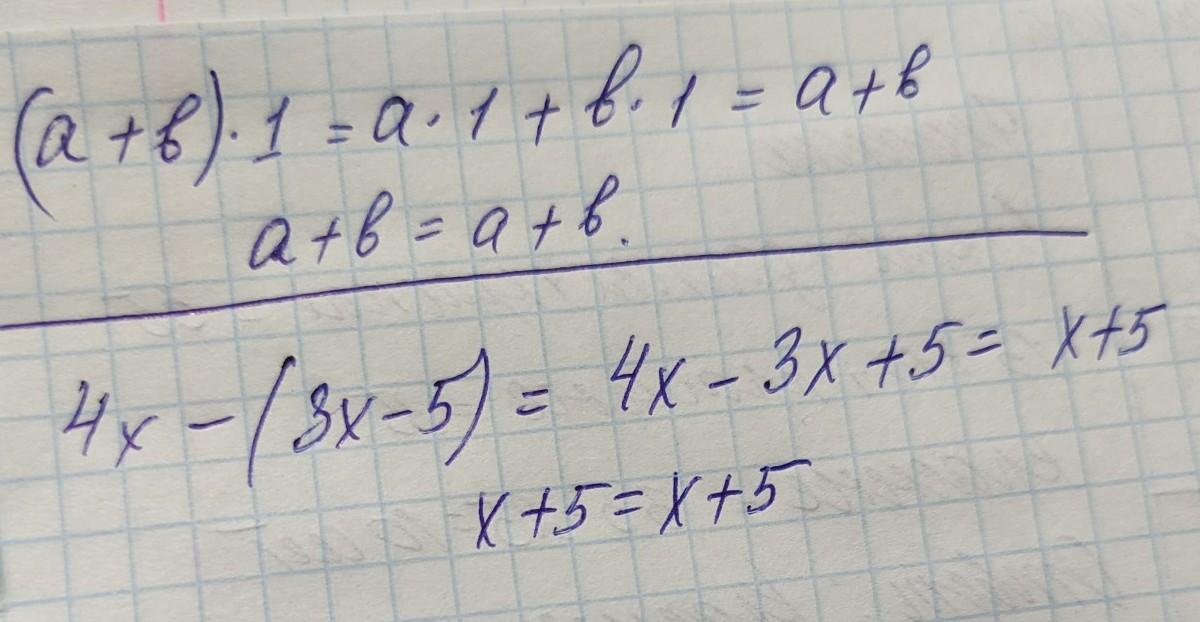 (a+в)·1=a·1+в·1=a+в
a+в=a+в.
4x-(3x-5)=4x-3x+5=x+5
x+5=x+5